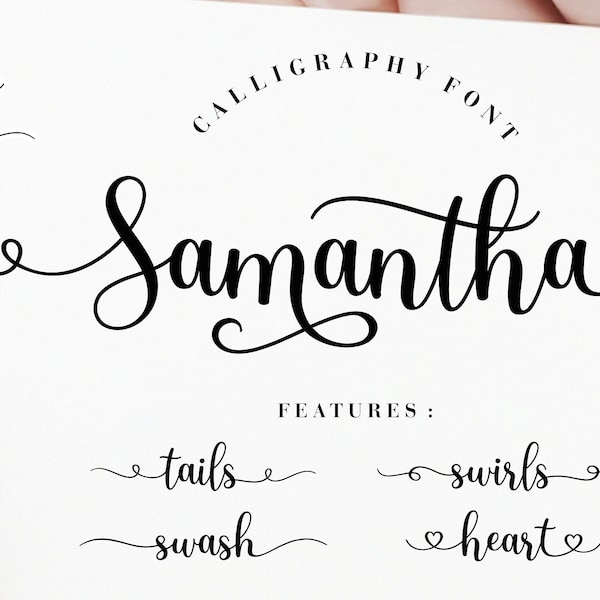 CALLIGRAPHY FONT
Samantha
FEATURES :
tails swirls
swash heart